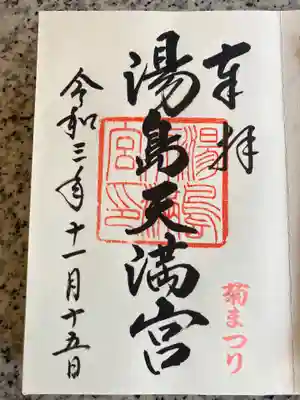 奉拝
湯島天満宮
湯島天満宮印
令和三年十一月十五日
菊まつり